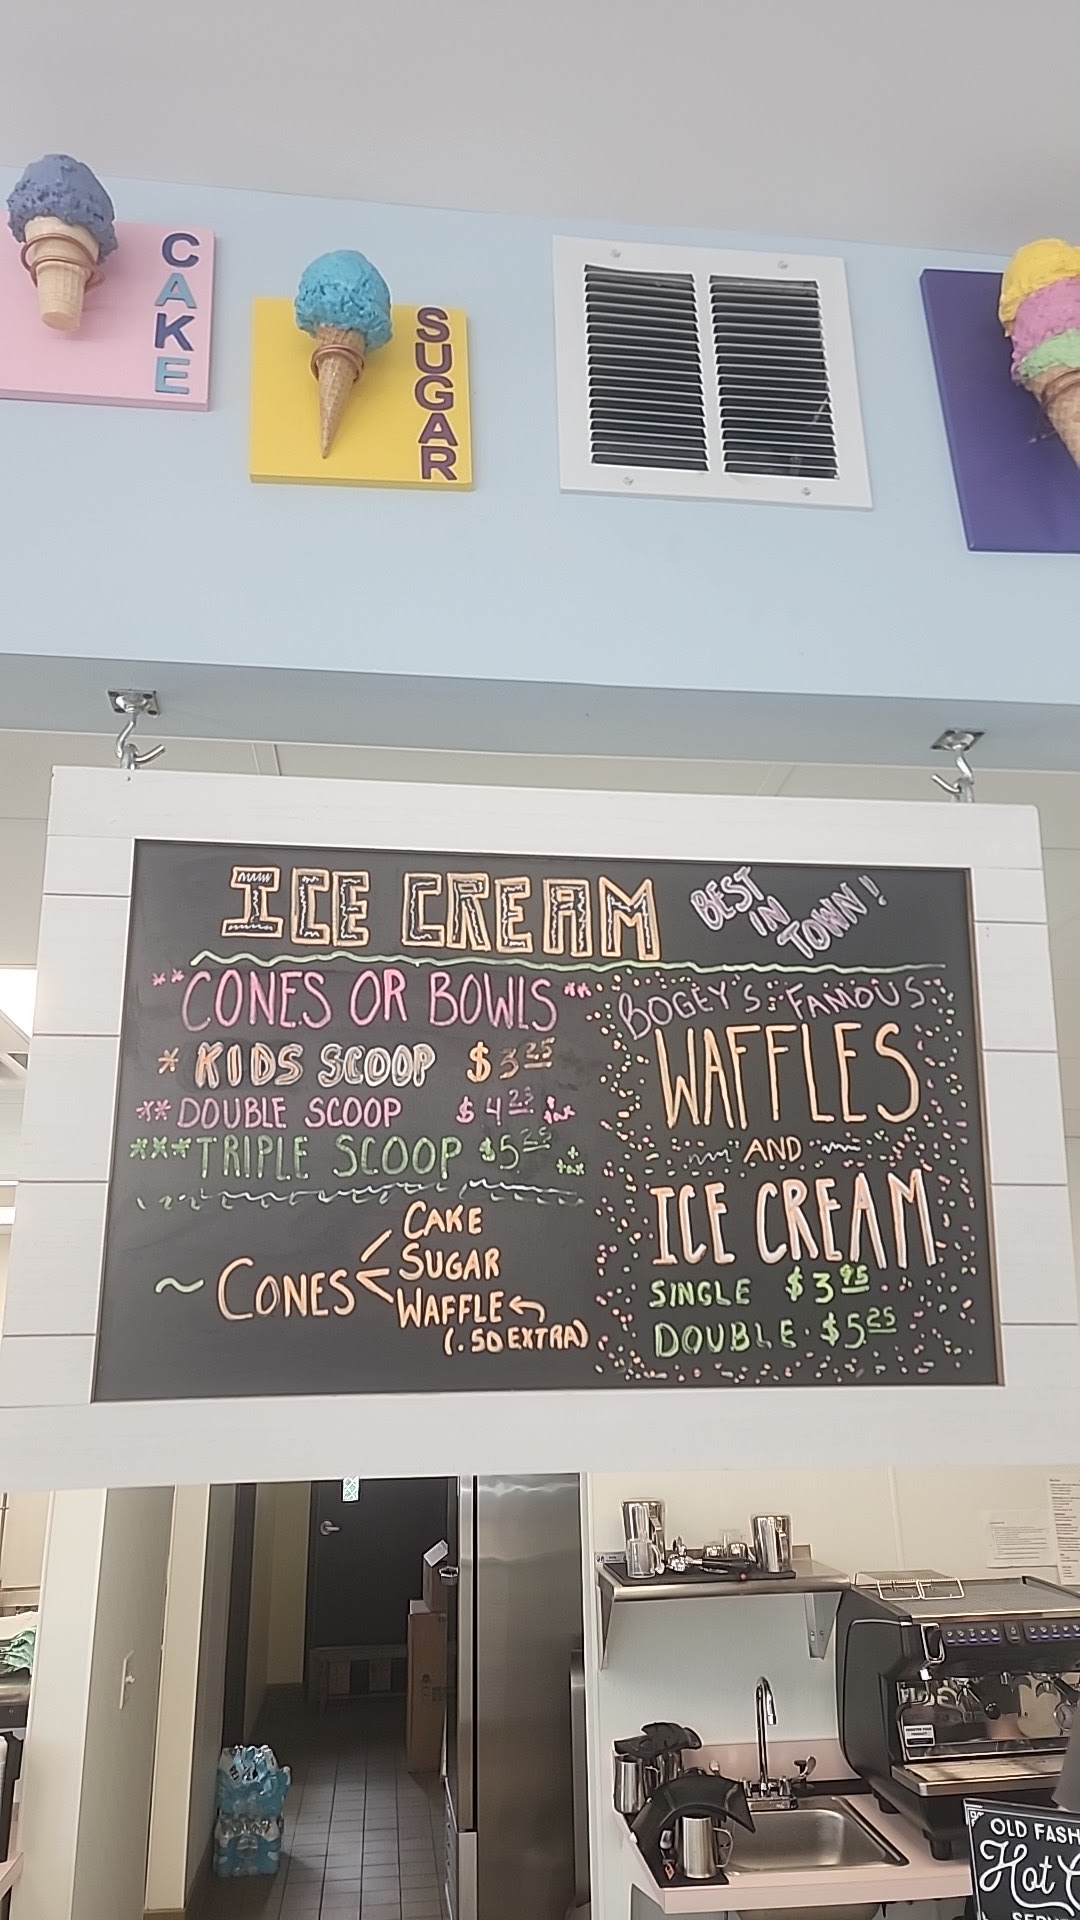 CAKE
SUGAR
ICE CREAM
BEST
IN
TOWN!
**CONES OR BOWLS**
* KIDS SCOOP $3.25
** DOUBLE SCOOP $4.25 + tax
*** TRIPLE SCOOP $5.25 + tax
~ CONES
CAKE
SUGAR
WAFFLE
(.50 EXTRA)
BOGEY'S FAMOUS
WAFFLES
AND
ICE CREAM
SINGLE $3.95
DOUBLE $5.25
OLD FASH
Hot